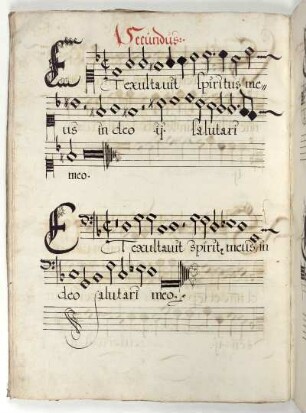 Secundus:
Et exultavit spiritus me=
us in deo ij salutari
meo.
Et exultavit spirit9 meus in
deo salutari meo.